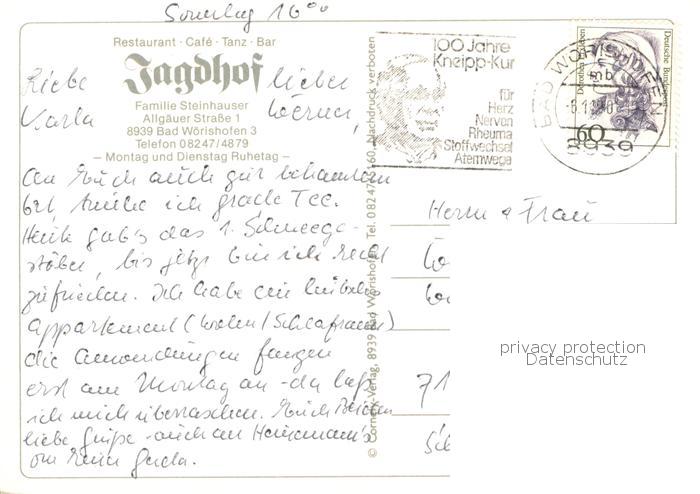 Sonntag 16⁰⁰
Restaurant · Café · Tanz · Bar
Jagdhof
Familie Steinhauser
Allgäuer Straße 1
8939 Bad Wörishofen 3
Telefon 08247/4879
– Montag und Dienstag Ruhetag –
Liebe lieber
Karla Werner,
an Euch auch gut bekannten
Ort, trinke ich grade Tee.
Heute gab's das 1. Schneege-
stöber, bis jetzt bin ich recht
zufrieden. Ich habe ein hübsches
Appartement (Wohn/Schlafraum)
die Anwendungen fangen
erst am Montag an - da laß
ich mich überraschen. Euch Beiden
liebe Grüße - auch an Heinemann's
von Eurer Gerda.
© Cornely-Verlag, 8939 Bad Wörishofen, Tel. 08247/2160, Nachdruck verboten
100 Jahre
Kneipp-Kur
für
Herz
Nerven
Rheuma
Stoffwechsel
Atemwege
BAD WÖRISHOFEN
mb
8939
Deutsche Bundespost
60
Herrn & Frau
71
privacy protection
Datenschutz